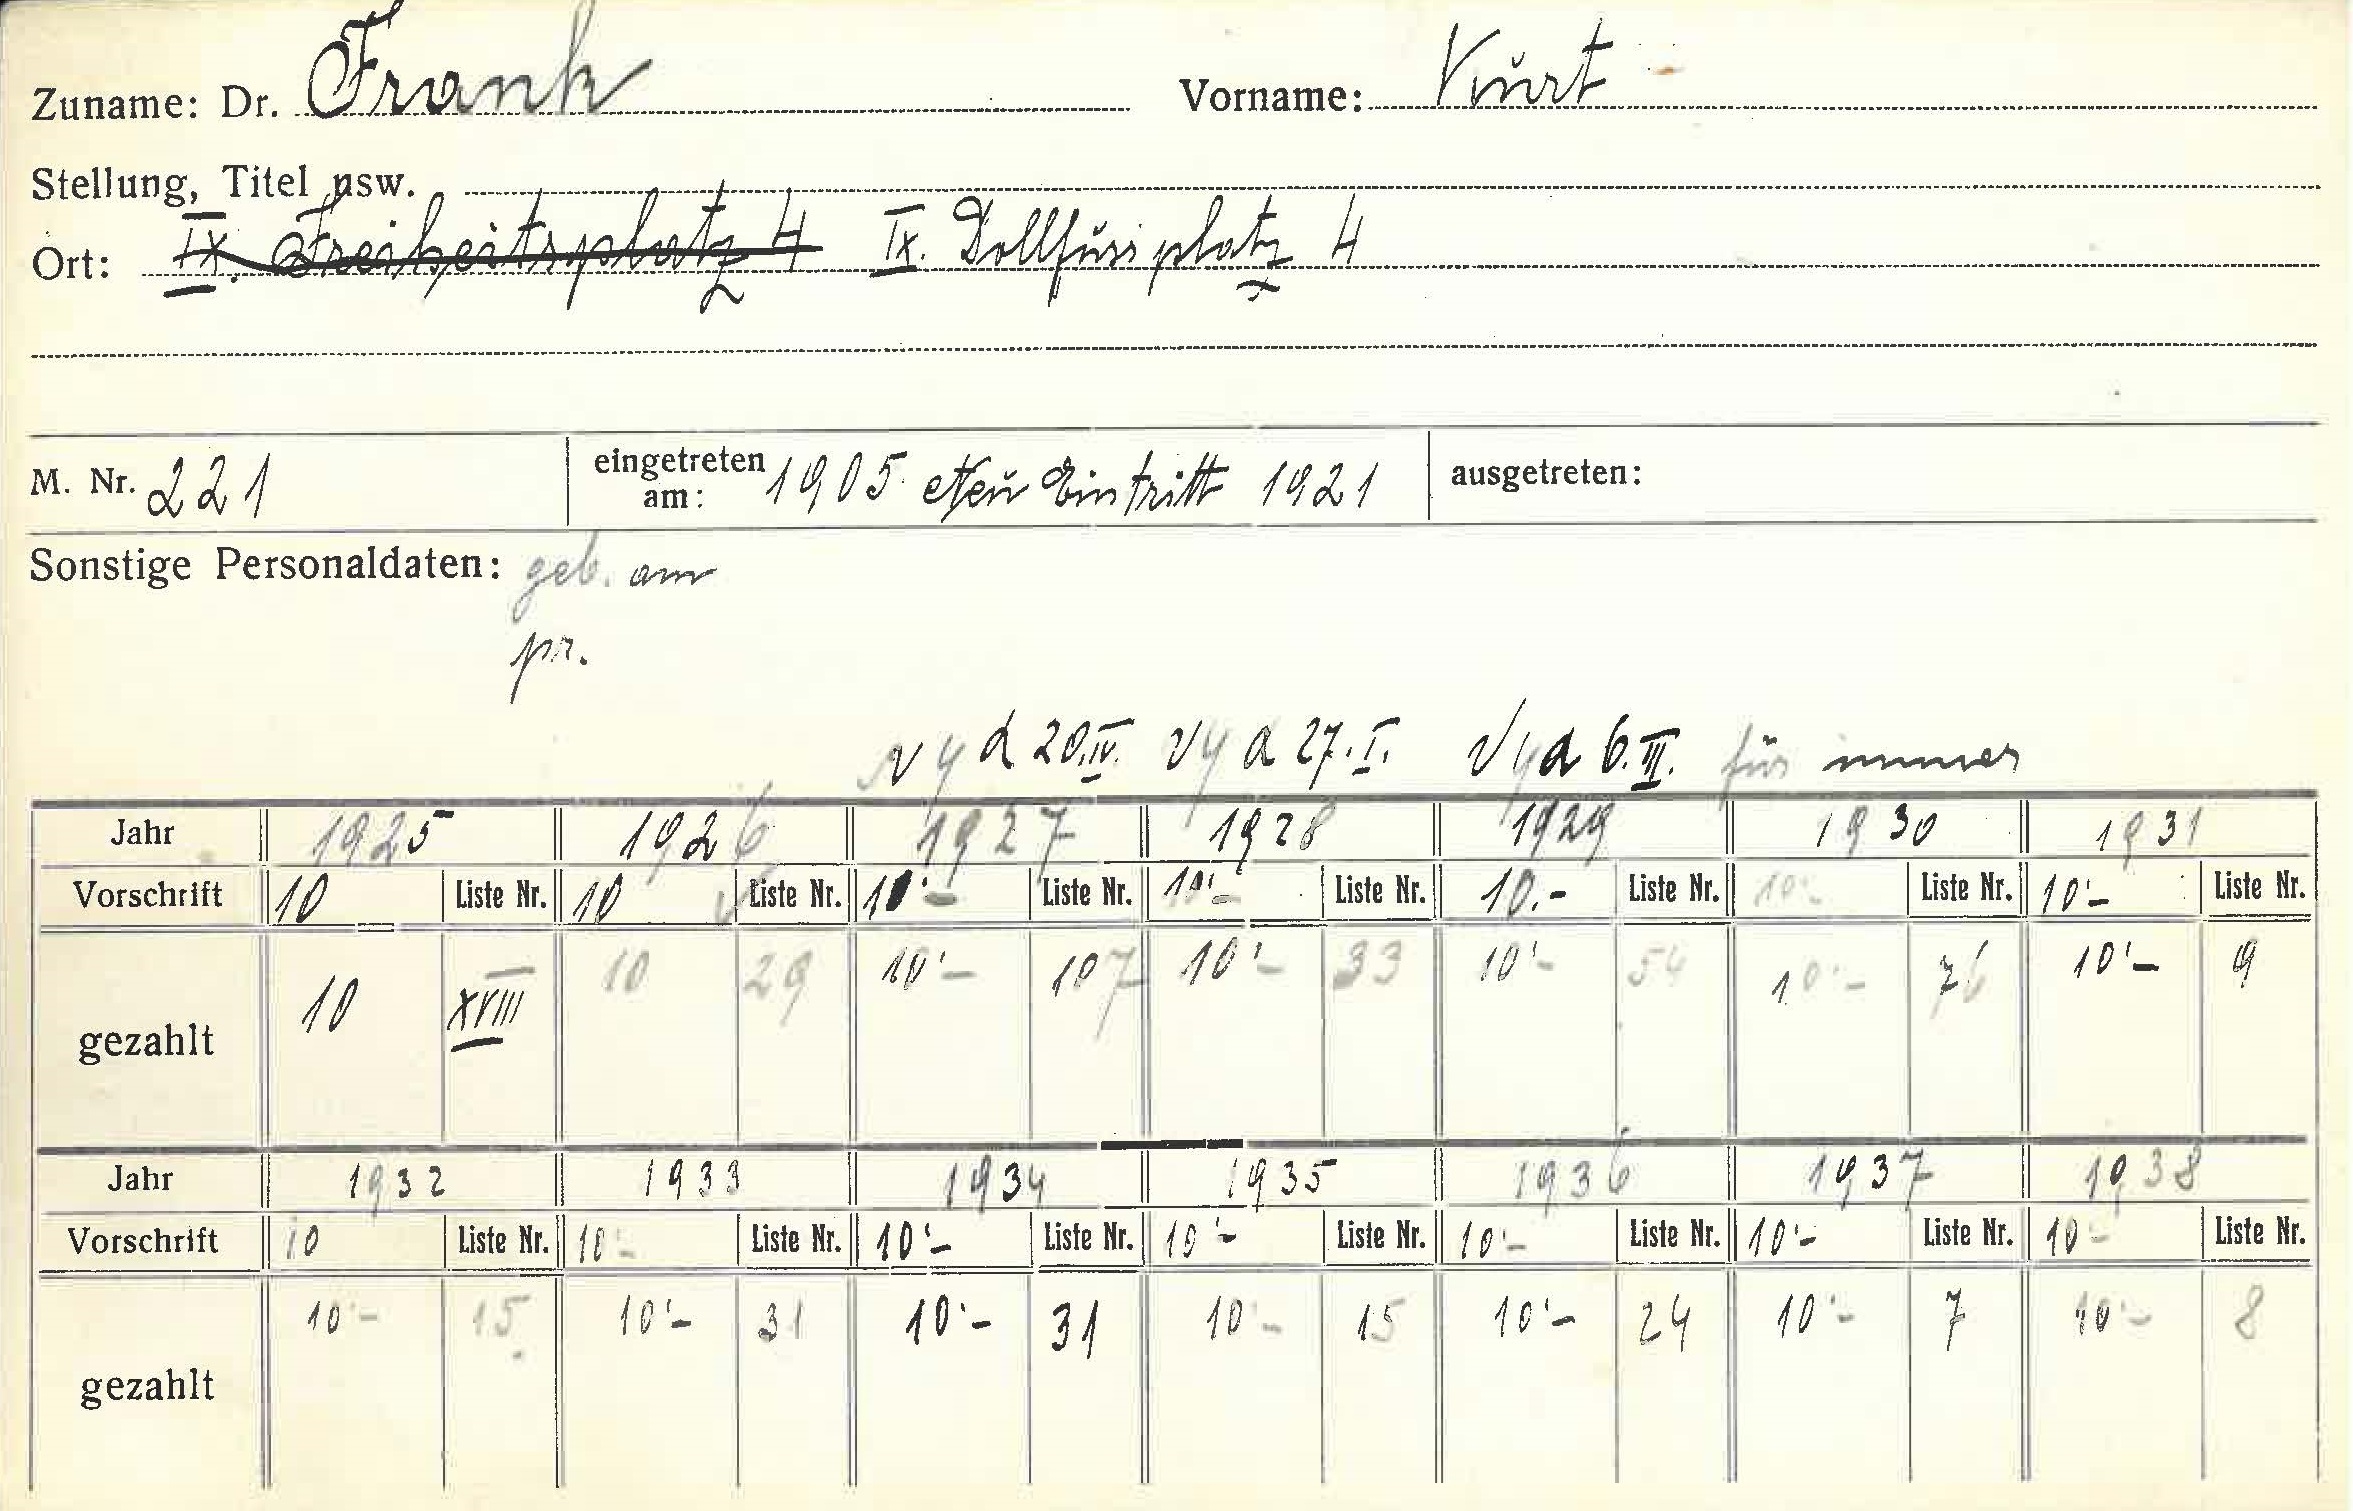 Zuname: Dr. Frank Vorname: Kurt
Stellung, Titel usw.
Ort: IX. Freiheitsplatz 4 IX. Dollfussplatz 4
M. Nr. 221 eingetreten am: 1905 Neu Eintritt 1921 ausgetreten:
Sonstige Personaldaten: geb. am
pr.
d 20.IV. 27.I. 6.III. für immer
Jahr 1925 1926 1927 1928 1929 1930 1931
Vorschrift 10 Liste Nr. 10 Liste Nr. 10'- Liste Nr. 10'- Liste Nr. 10.- Liste Nr. 10'- Liste Nr. 10'- Liste Nr.
gezahlt 10 XVIII 10 29 10'- 107 10'- 33 10'- 54 10'- 76 10'- 9
Jahr 1932 1933 1934 1935 1936 1937 1938
Vorschrift 10 Liste Nr. 10'- Liste Nr. 10'- Liste Nr. 10'- Liste Nr. 10'- Liste Nr. 10'- Liste Nr. 10'- Liste Nr.
gezahlt 10'- 15 10'- 31 10'- 31 10'- 15 10'- 24 10'- 7 10'- 8